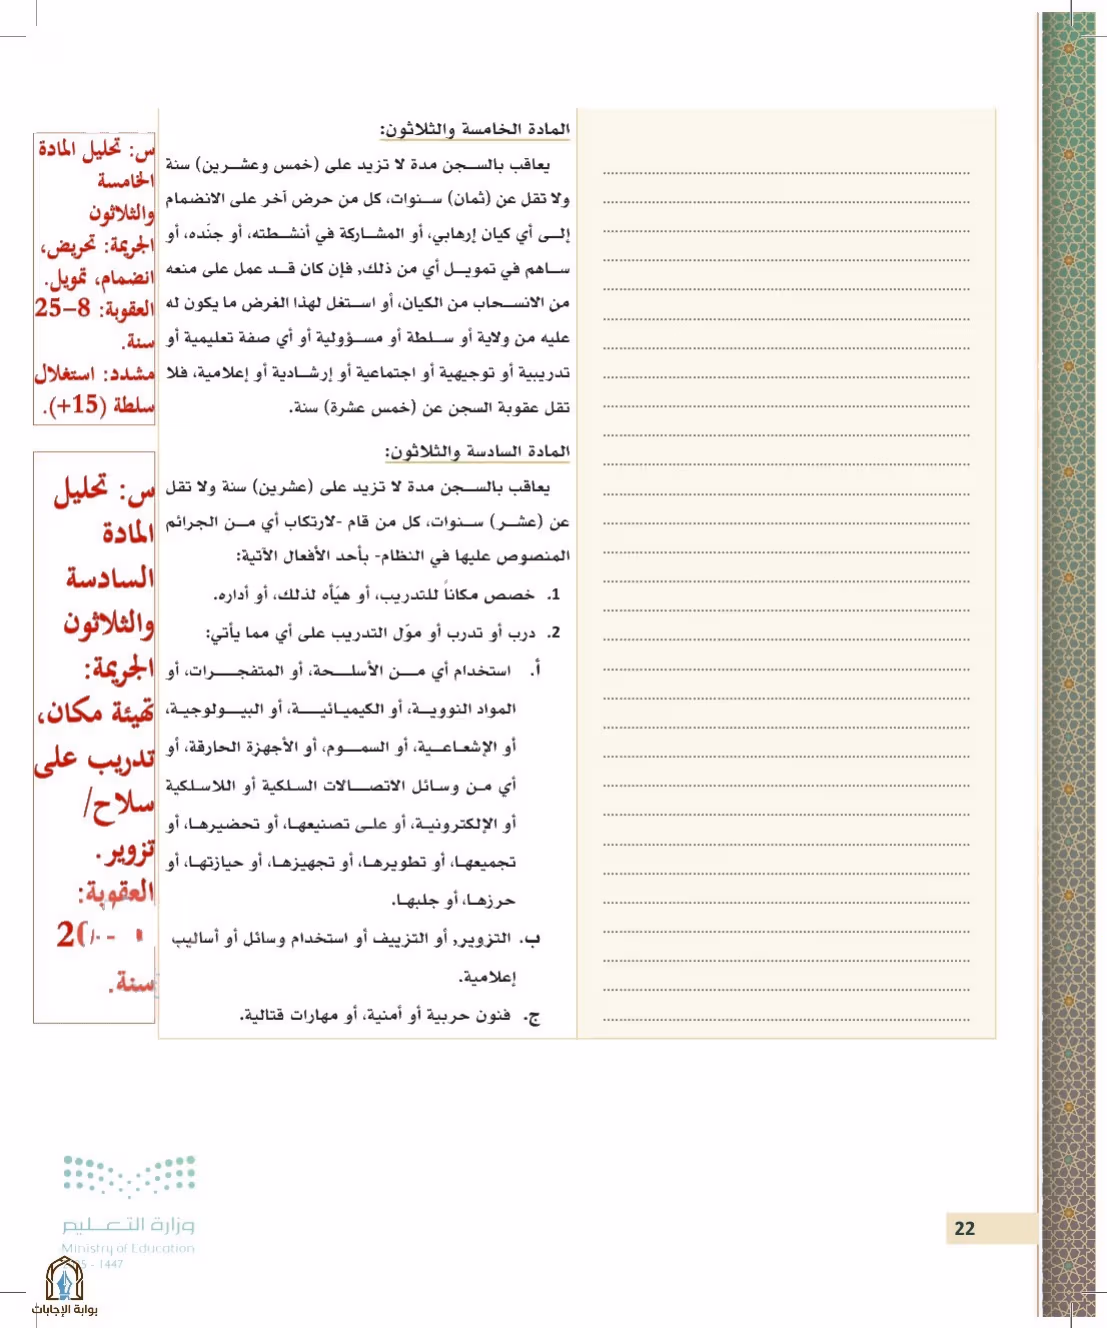 المادة الخامسة والثلاثون:
يعاقب بالسجن مدة لا تزيد على (خمس وعشرين) سنة
ولا تقل عن (ثمان) سنوات، كل من حرض آخر على الانضمام
إلى أي كيان إرهابي، أو المشاركة في أنشطته، أو جنّده، أو
ساهم في تمويل أي من ذلك, فإن كان قد عمل على منعه
من الانسحاب من الكيان، أو استغل لهذا الغرض ما يكون له
عليه من ولاية أو سلطة أو مسؤولية أو أي صفة تعليمية أو
تدريبية أو توجيهية أو اجتماعية أو إرشادية أو إعلامية، فلا
تقل عقوبة السجن عن (خمس عشرة) سنة.
المادة السادسة والثلاثون:
يعاقب بالسجن مدة لا تزيد على (عشرين) سنة ولا تقل
عن (عشر) سنوات، كل من قام -لارتكاب أي من الجرائم
المنصوص عليها في النظام- بأحد الأفعال الآتية:
1. خصص مكاناً للتدريب، أو هيّأه لذلك، أو أداره.
2. درب أو تدرب أو موّل التدريب على أي مما يأتي:
أ. استخدام أي من الأسلحة، أو المتفجرات، أو
المواد النووية، أو الكيميائية، أو البيولوجية،
أو الإشعاعية، أو السموم، أو الأجهزة الحارقة، أو
أي من وسائل الاتصالات السلكية أو اللاسلكية
أو الإلكترونية، أو على تصنيعها، أو تحضيرها، أو
تجميعها، أو تطويرها، أو تجهيزها، أو حيازتها، أو
حرزها، أو جلبها.
ب. التزوير, أو التزييف أو استخدام وسائل أو أساليب
إعلامية.
ج. فنون حربية أو أمنية، أو مهارات قتالية.
س: تحليل المادة
الخامسة
والثلاثون
الجريمة: تحريض،
انضمام، تمويل.
العقوبة: 8–25
سنة.
مشدد: استغلال
سلطة (15+).
س: تحليل
المادة
السادسة
والثلاثون
الجريمة:
تهيئة مكان،
تدريب على
سلاح/
تزوير.
العقوبة:
سنة.
وزارة التعليم
Ministry of Education
- 1447
بوابة الإجابات
22